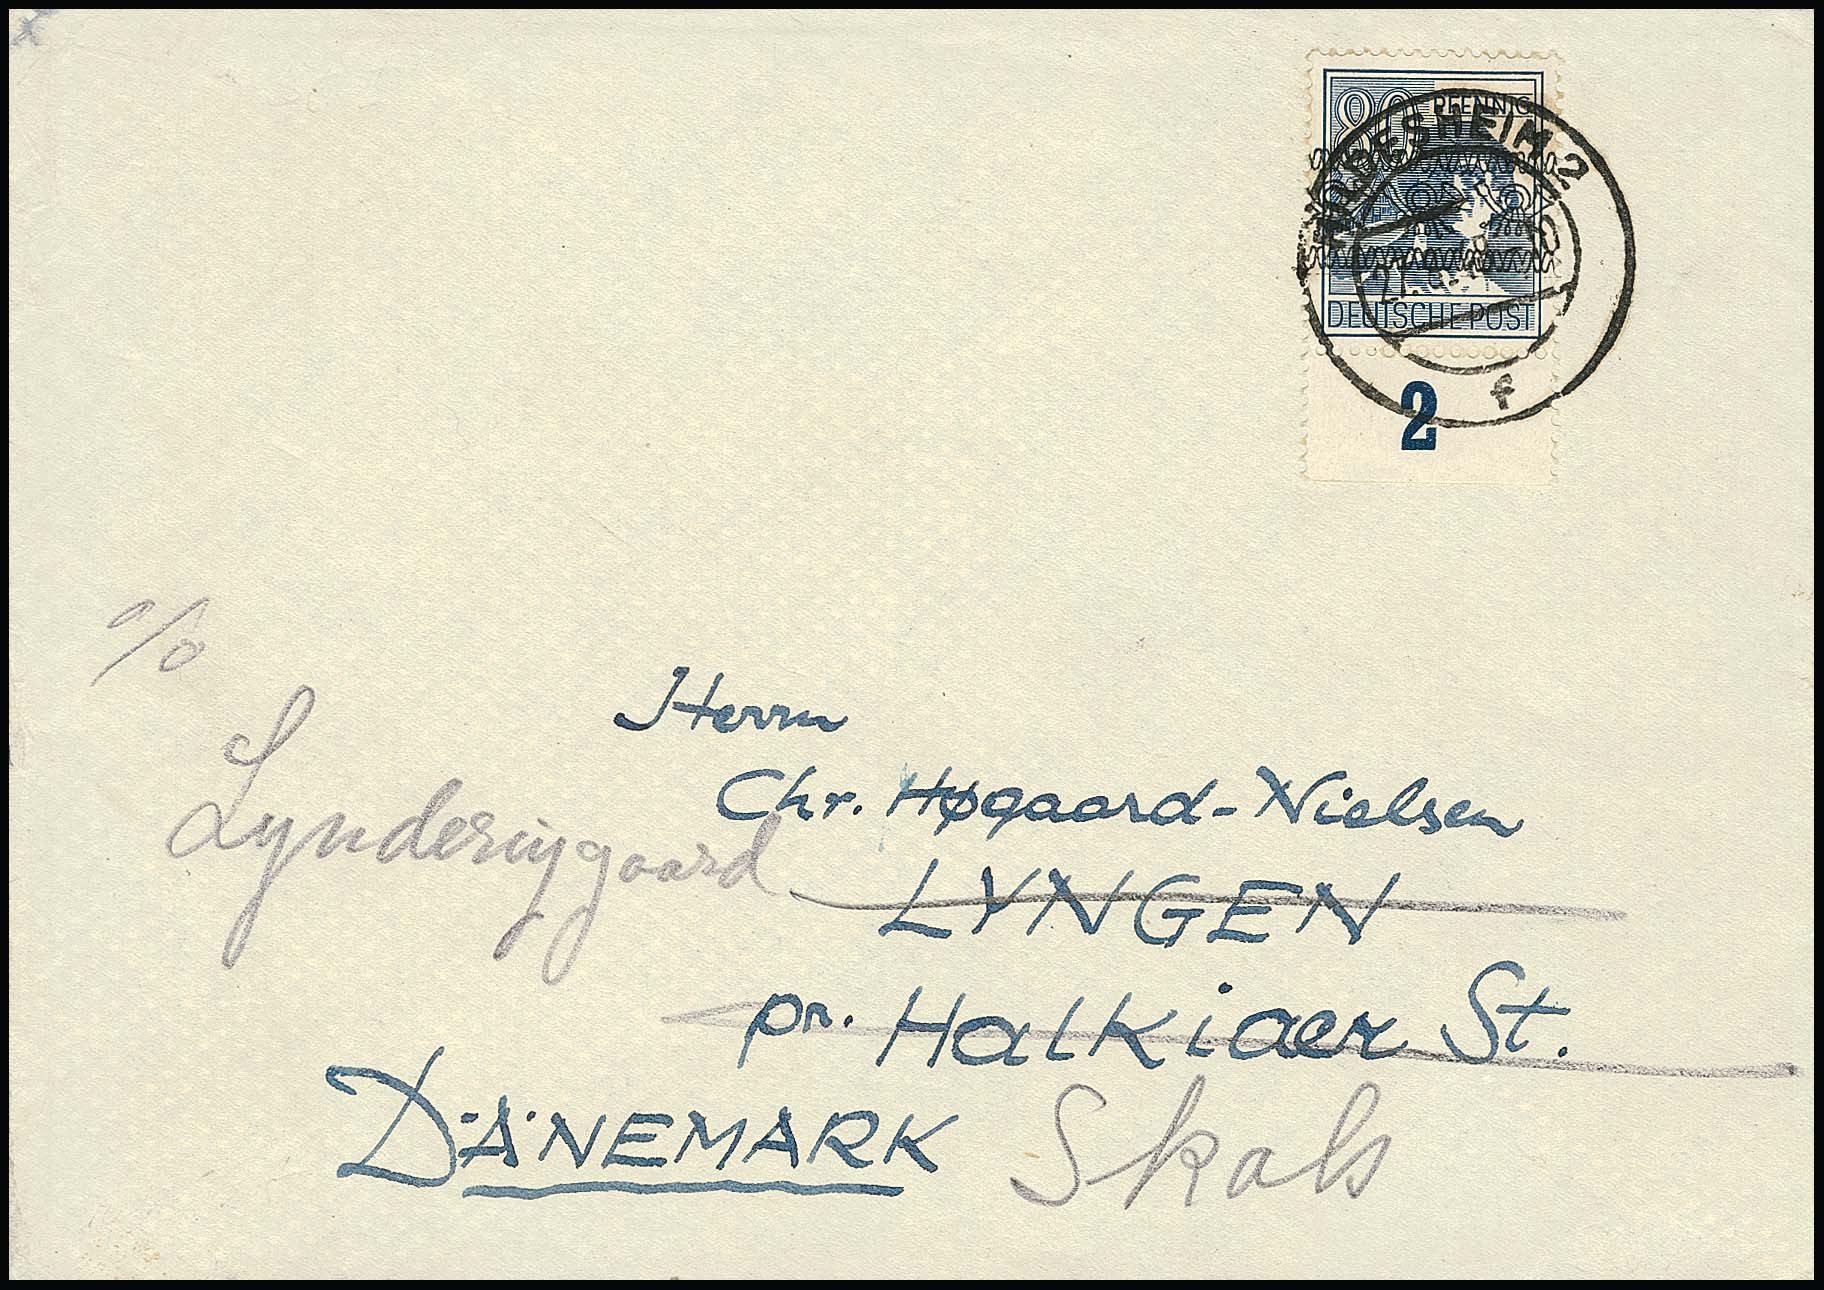 80 PFENNIG
HILDESHEIM 2
DEUTSCHE POST
f
2
c/o
Lynderupgaard
Herrn
Chr. Høgaard-Nielsen
LYNGEN
pr. Halkiaer St.
DÄNEMARK
Skals